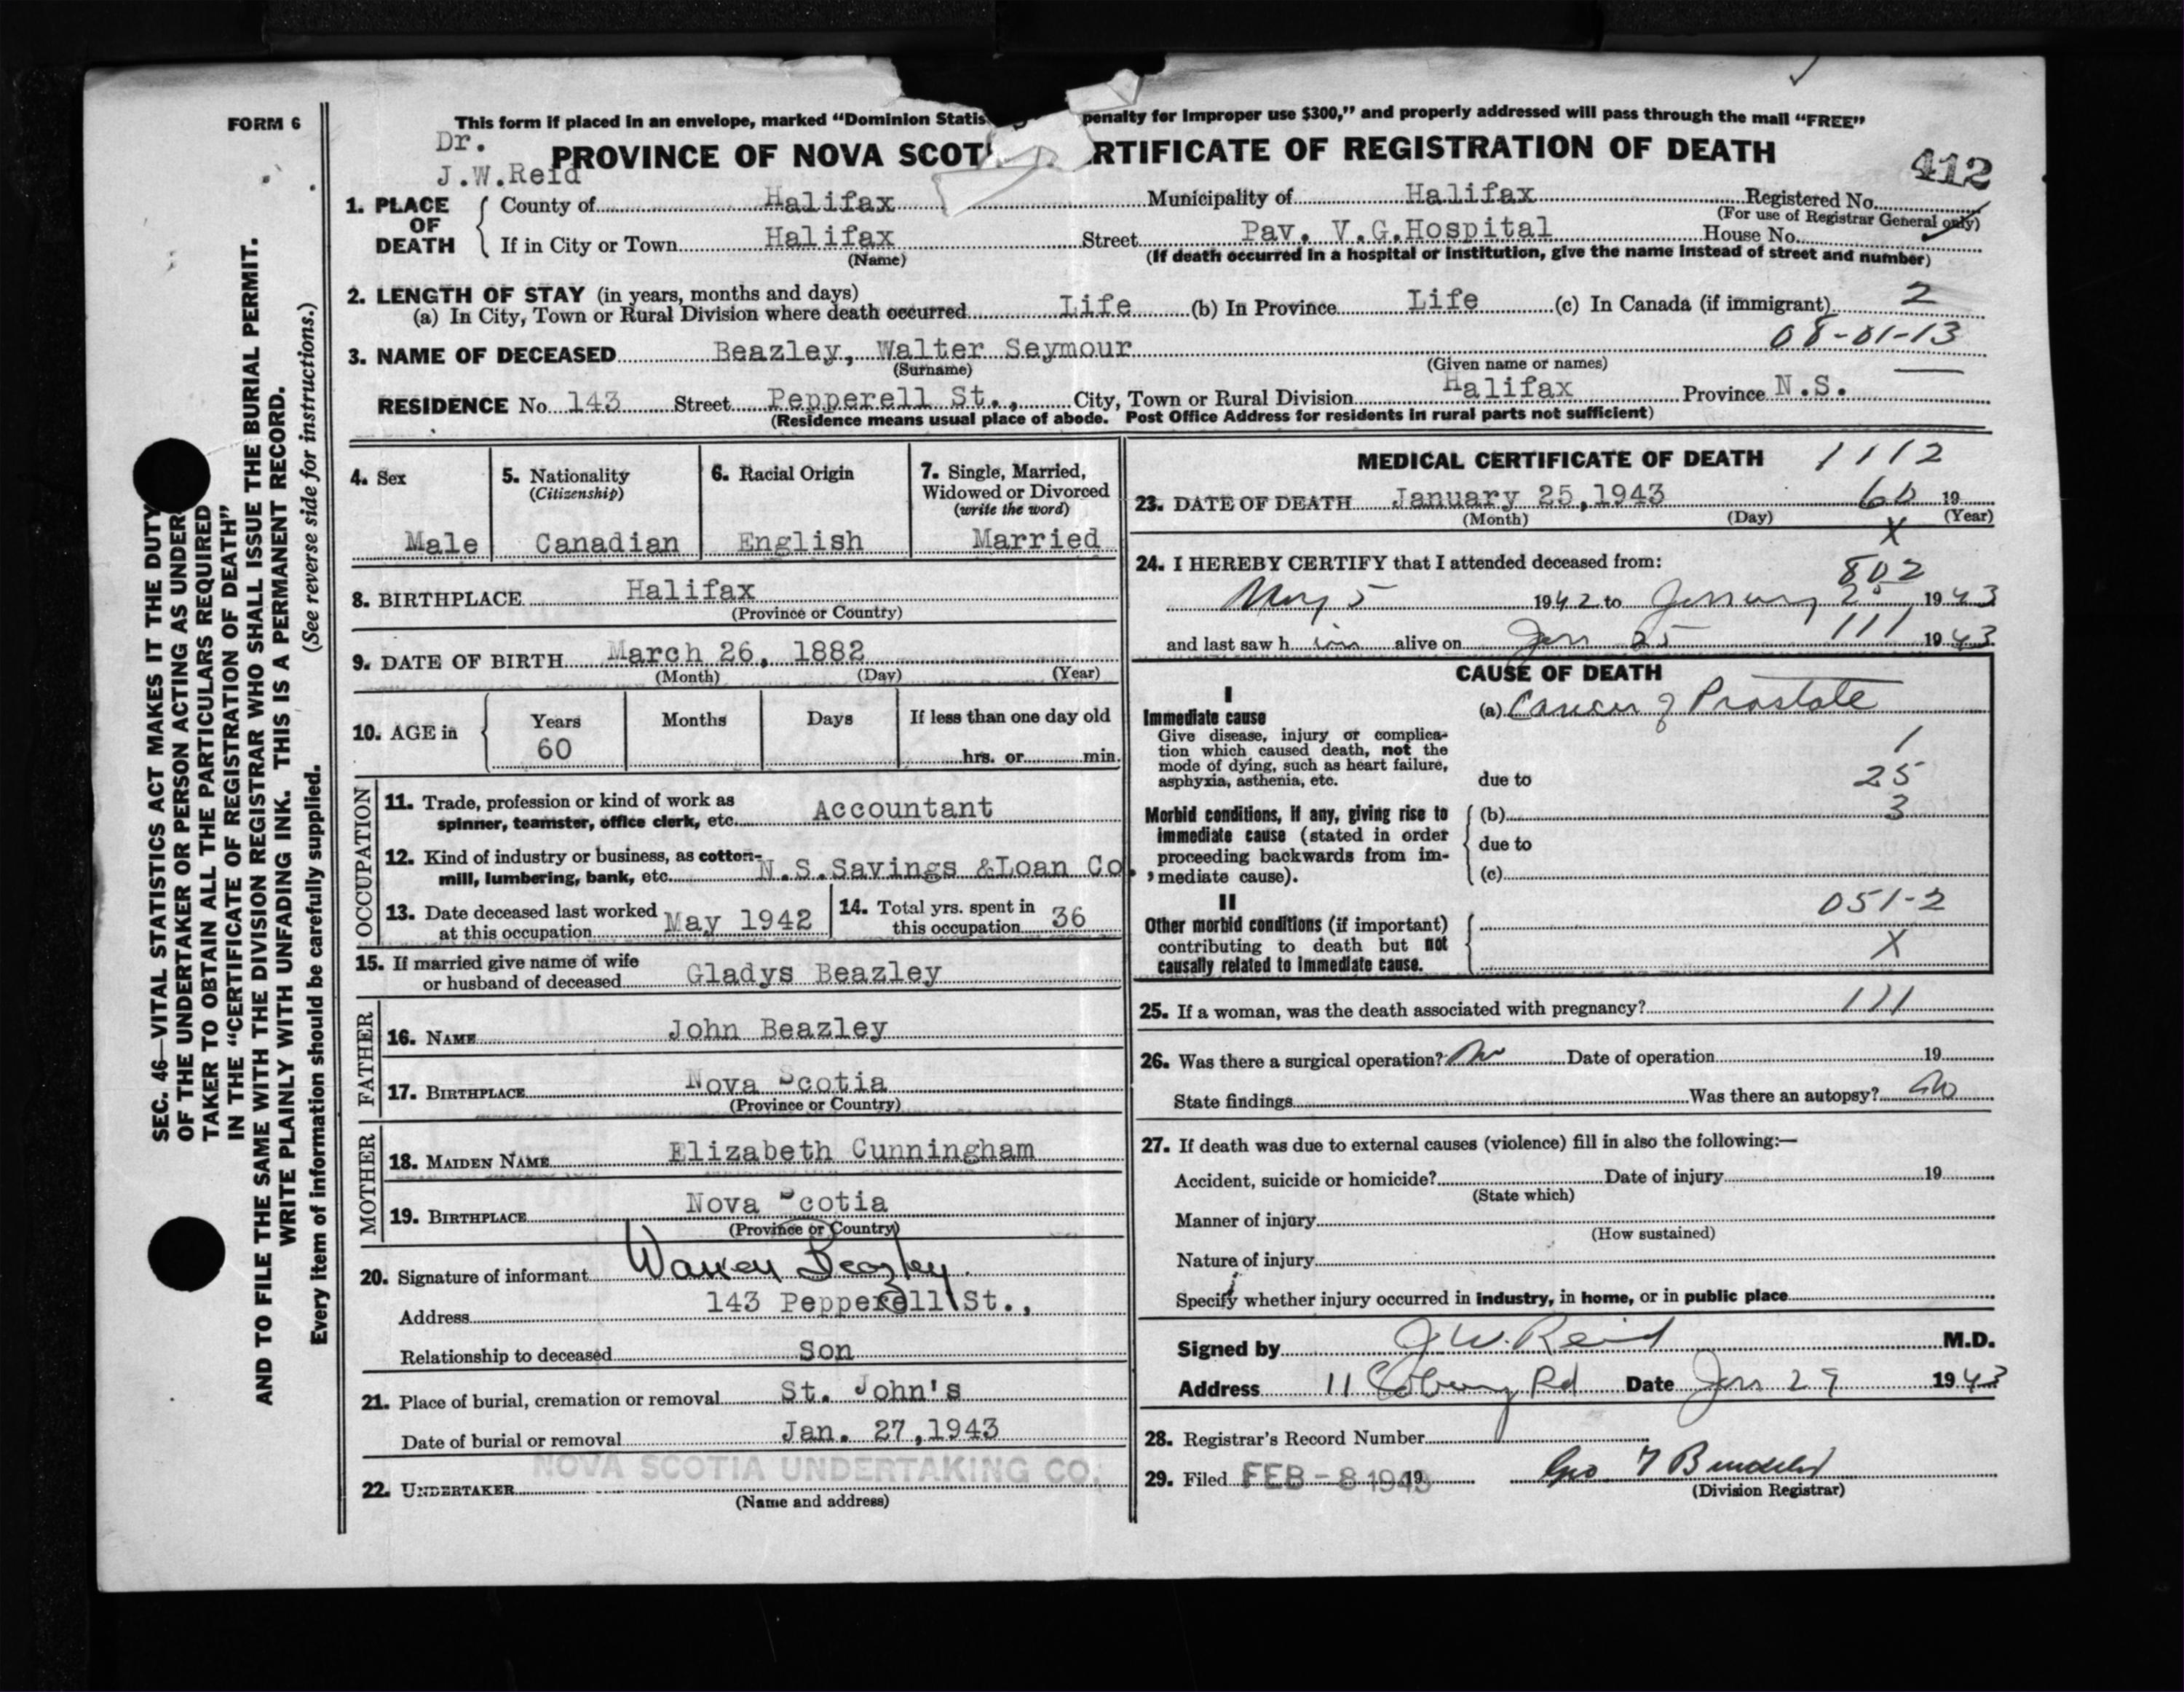 FORM 6
This form if placed in an envelope, marked "Dominion Statis penalty for improper use $300," and properly addressed will pass through the mail "FREE"
Dr.
J.W.Reid
PROVINCE OF NOVA SCOT RTIFICATE OF REGISTRATION OF DEATH
412
1. PLACE OF DEATH
County of Halifax Municipality of Halifax Registered No.
(For use of Registrar General only)
If in City or Town Halifax Street Pav. V.G.Hospital House No.
(Name) (If death occurred in a hospital or institution, give the name instead of street and number)
2. LENGTH OF STAY (in years, months and days)
(a) In City, Town or Rural Division where death occurred Life (b) In Province Life (c) In Canada (if immigrant) 2
08-01-13
3. NAME OF DECEASED Beazley, Walter Seymour
(Surname) (Given name or names)
RESIDENCE No 143 Street Pepperell St., City, Town or Rural Division Halifax Province N.S.
(Residence means usual place of abode. Post Office Address for residents in rural parts not sufficient)
SEC. 46—VITAL STATISTICS ACT MAKES IT THE DUTY
OF THE UNDERTAKER OR PERSON ACTING AS UNDER
TAKER TO OBTAIN ALL THE PARTICULARS REQUIRED
IN THE "CERTIFICATE OF REGISTRATION OF DEATH"
AND TO FILE THE SAME WITH THE DIVISION REGISTRAR WHO SHALL ISSUE THE BURIAL PERMIT.
WRITE PLAINLY WITH UNFADING INK. THIS IS A PERMANENT RECORD.
Every item of information should be carefully supplied. (See reverse side for instructions.)
4. Sex
Male
5. Nationality
(Citizenship)
Canadian
6. Racial Origin
English
7. Single, Married,
Widowed or Divorced
(write the word)
Married
8. BIRTHPLACE Halifax
(Province or Country)
9. DATE OF BIRTH March 26, 1882
(Month) (Day) (Year)
10. AGE in
Years Months Days If less than one day old
60 hrs. or min.
OCCUPATION
11. Trade, profession or kind of work as
spinner, teamster, office clerk, etc. Accountant
12. Kind of industry or business, as cotton-
mill, lumbering, bank, etc. N.S.Savings &Loan Co.,
13. Date deceased last worked
at this occupation May 1942
14. Total yrs. spent in
this occupation 36
15. If married give name of wife
or husband of deceased Gladys Beazley
FATHER
16. NAME John Beazley
17. BIRTHPLACE Nova Scotia
(Province or Country)
MOTHER
18. MAIDEN NAME Elizabeth Cunningham
19. BIRTHPLACE Nova Scotia
(Province or Country)
20. Signature of informant Warren Beazley
Address 143 Pepperell St.,
Relationship to deceased Son
21. Place of burial, cremation or removal St. John's
Date of burial or removal Jan. 27,1943
22. UNDERTAKER NOVA SCOTIA UNDERTAKING CO.
(Name and address)
MEDICAL CERTIFICATE OF DEATH 1112
23. DATE OF DEATH January 25,1943 60 19
(Month) (Day) (Year)
X
24. I HEREBY CERTIFY that I attended deceased from:
802
May 5 1942 to January 25 1943
and last saw h im alive on Jan 25 111 1943
CAUSE OF DEATH
I
Immediate cause
Give disease, injury or complica-
tion which caused death, not the
mode of dying, such as heart failure,
asphyxia, asthenia, etc.
(a) Cancer of Prostate
1
due to 25
3
Morbid conditions, if any, giving rise to
immediate cause (stated in order
proceeding backwards from im-
mediate cause).
(b)
due to
(c)
II
Other morbid conditions (if important)
contributing to death but not
causally related to immediate cause.
051-2
X
25. If a woman, was the death associated with pregnancy? 111
26. Was there a surgical operation? No Date of operation 19
State findings Was there an autopsy? No
27. If death was due to external causes (violence) fill in also the following:—
Accident, suicide or homicide? Date of injury 19
(State which)
Manner of injury
(How sustained)
Nature of injury
Specify whether injury occurred in industry, in home, or in public place
Signed by J.W. Reid M.D.
Address 11 Coburg Rd Date Jan 29 1943
28. Registrar's Record Number
29. Filed FEB - 8 1943 19
(Division Registrar)